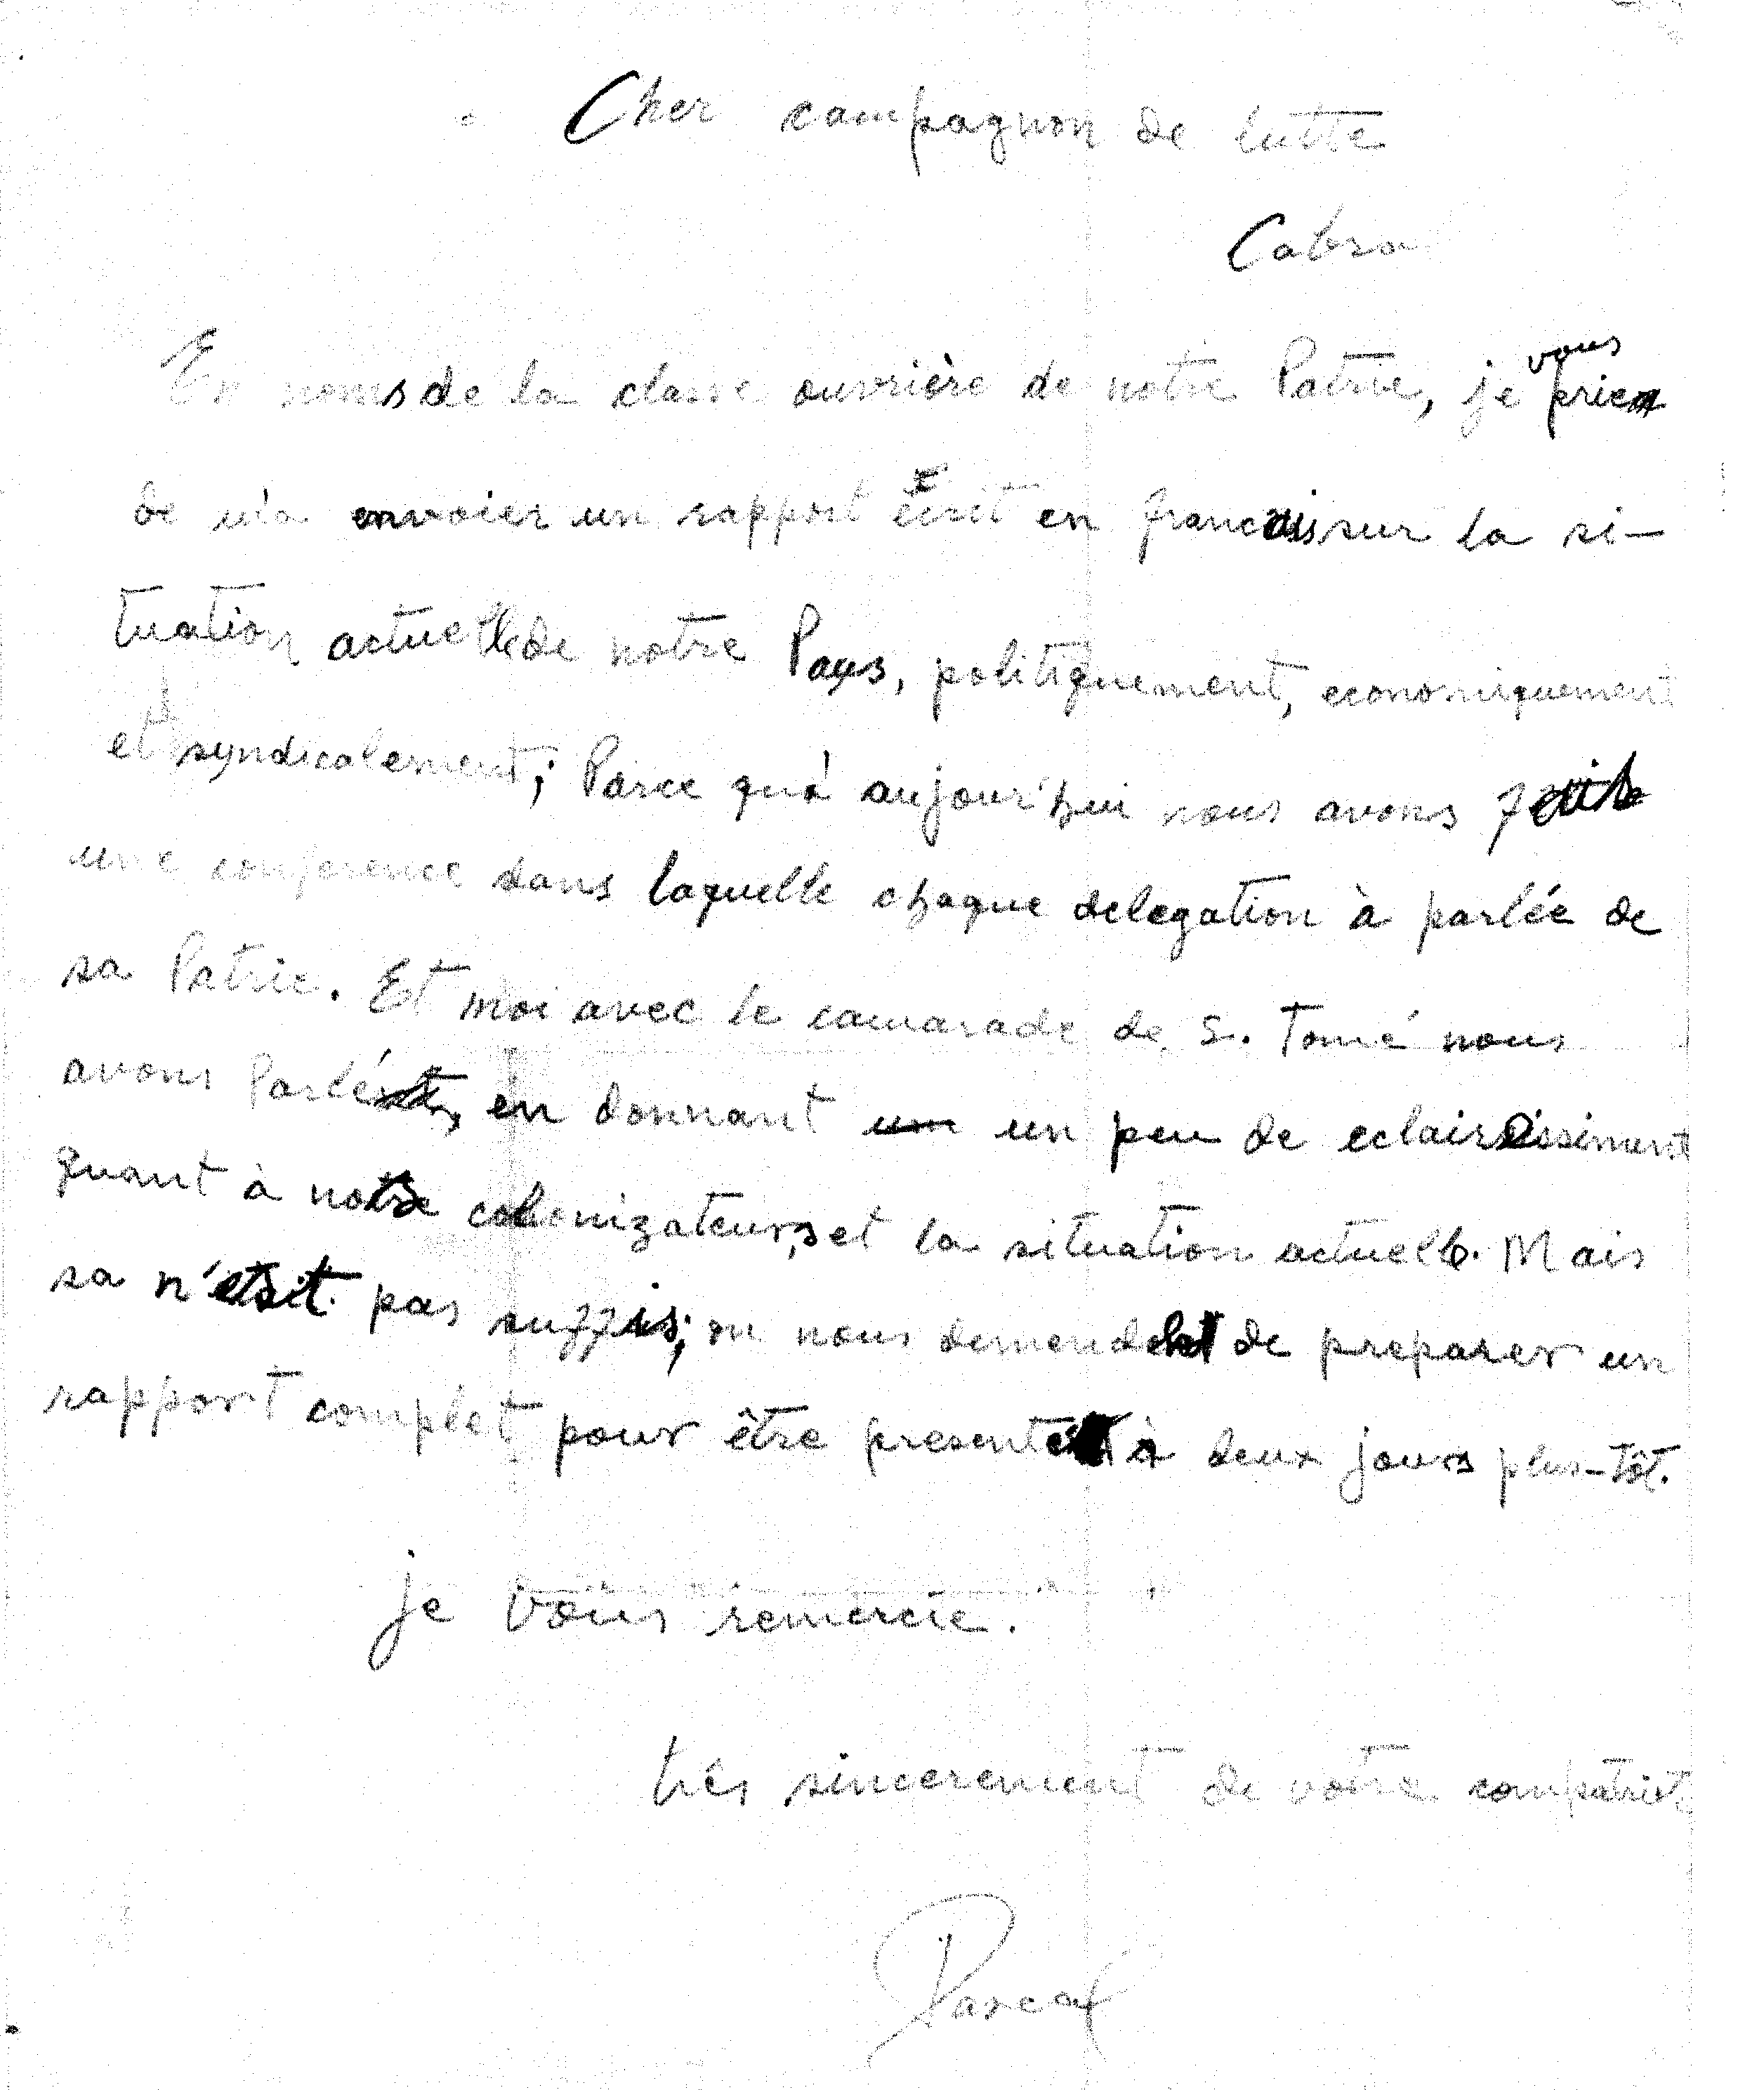 Cher campagnon de lutte
Cabral
En noms de la classe ouvrière de notre Patrie, je vous prie
de m'a envoier un rapport écrit en francais sur la si-
tuation actuelle de notre Pays, politiquement, economiquement
et syndicalement; Parce qu'à aujour'hui nous avons
une conference dans laquelle chaque delegation à parlée de
sa Patrie. Et moi avec le camarade de S. Tomé nous
avons Parlé, en donnant un peu de eclaircissiment
quant à notre colonizateurs, et la situation actuelle. Mais
sa n'etait pas suffis; on nous demende de preparer un
rapport complet pour être presenté à deux jours plus-tôt.
je vous remercie.
três sincerement de votre compatriote
Pascal